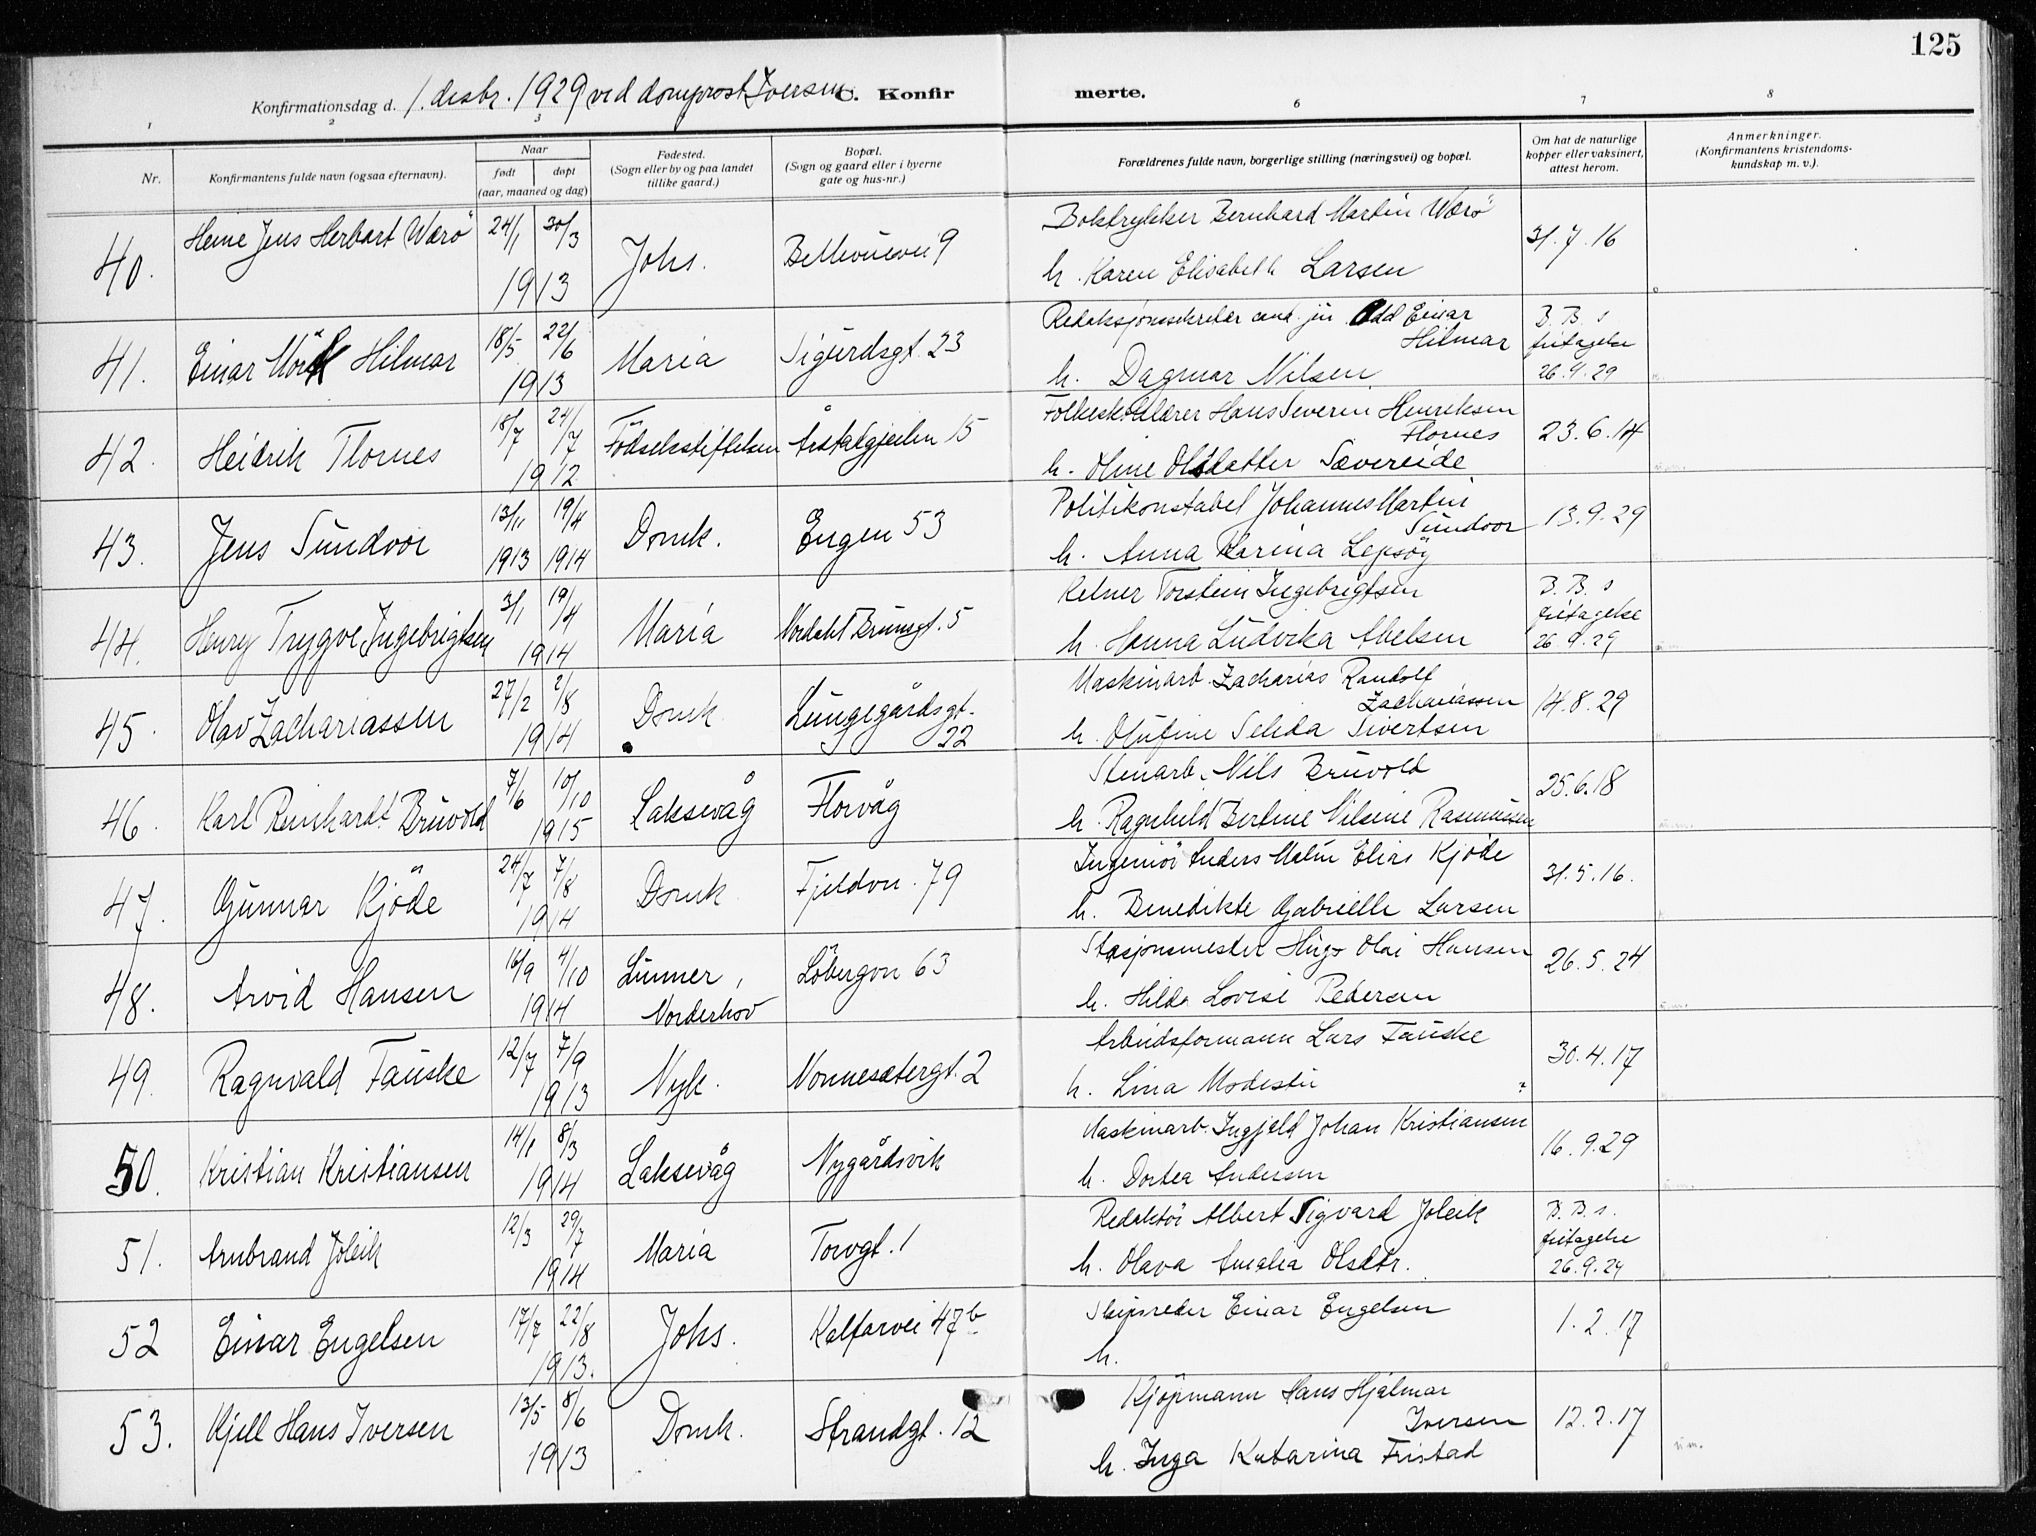 125
Konfirmationsdag d. 1. desbr. 1929 ved domprost Iversen C. Konfir merte.
1 2 3 6 7 8
Nr.
Konfirmantens fulde navn (ogsaa efternavn).
Naar
født døpt
(aar, maaned og dag)
Fødested.
(Sogn eller by og paa landet
tillike gaard.)
Bopæl.
(Sogn og gaard eller i byerne
gate og hus-nr.)
Forældrenes fulde navn, borgerlige stilling (næringsvei) og bopæl.
Om hat de naturlige
kopper eller vaksinert,
attest herom.
Anmerkninger.
(Konfirmantens kristendoms-
kundskap m. v.).
40. Heine Jens Herbart Wærö 24/1 30/3 1913 Johs. Bellevuevei 9 Boktrykker Bernhard Martin Wærö 31.7.16
h. Karen Elisabeth Larsen
41. Einar Mörk Hilmar 18/5 22/6 1913 Maria Sigurdsgt. 23 Redaksjonssekretær cand. jur. Odd Einar
Hilmar
h. Dagmar Nilsen
B. B. s
fritagelse
26.9.29
42. Heidrik Flornes 18/7 24/7 1912 Födselsstiftelsen Årstadgjeilen 15 Folkeskolelærer Hans Severin Henriksen
Flornes
h. Oline Olsdatter Sævereide
23.6.14
43. Jens Sundvor 13/11 1913 19/4 1914 Domk. Engen 53 Politikonstabel Johannes Martin
Sundvor
h. Anna Karina Lepsöy
13.9.29
44. Henry Trygve Ingebrigtsen 3/1 19/4 1914 Maria Nordahl Brunsgt. 5 Kelner Torstein Ingebrigtsen
h. Hanna Ludvika Abelsen
B. B. s
fritagelse
26.9.29
45. Olav Zachariassen 27/2 2/8 1914 Domk. Lungegårdsgt.
22
Maskinarb. Zacharias Randolf
Zachariassen
h. Olufine Selida Sivertsen
14.8.29
46. Karl Reinhardt Bruvold 7/6 10/10 1915 Laksevåg Florvåg Stenarb. Nils Bruvold
h. Ragnhild Bertine Nilsine Rasmussen
25.6.18
47. Gunnar Kjöde 24/7 7/8 1914 Domk. Fjeldvn. 79 Ingeniör Anders Malm Elias Kjöde
h. Benedikte Gabrielle Larsen
31.5.16.
48. Arvid Hansen 16/9 4/10 1914 Lunner,
Norderhov
Löbergvn 63 Stasjonsmester Hugo Olai Hansen
h. Hilda Lovise Pedersen
26.5.24
49. Ragnvald Fauske 12/7 7/9 1913 Nyk. Nonnesætergt. 2 Arbeidsformann Lars Fauske
h. Lina Modesta ?
30.4.17
50. Kristian Kristiansen 14/1 8/3 1914 Laksevåg Nygårdsvik Maskinarb. Ingjeld Johan Kristiansen
h. Dortea Andersen
16.9.29
51. Arnbrand Jöleik 12/3 29/7 1914 Maria Torvgt. 1 Redaktör Albert Sigvard Joleik
h. Olava Amalia Olsdtr.
B. B. s.
fritagelse
26.9.29
52 Einar Engelsen 17/7 22/8 1913. Johs. Kalfarvei 47b Skipsreder Einar Engelsen
h.
1.2.17
53. Kjell Hans Iversen 13/5 8/6 1913 Domk. Strandgt. 12 Kjöpmann Hans Hjalmar
Iversen
h. Inga Katarina Fristad
12.2.17